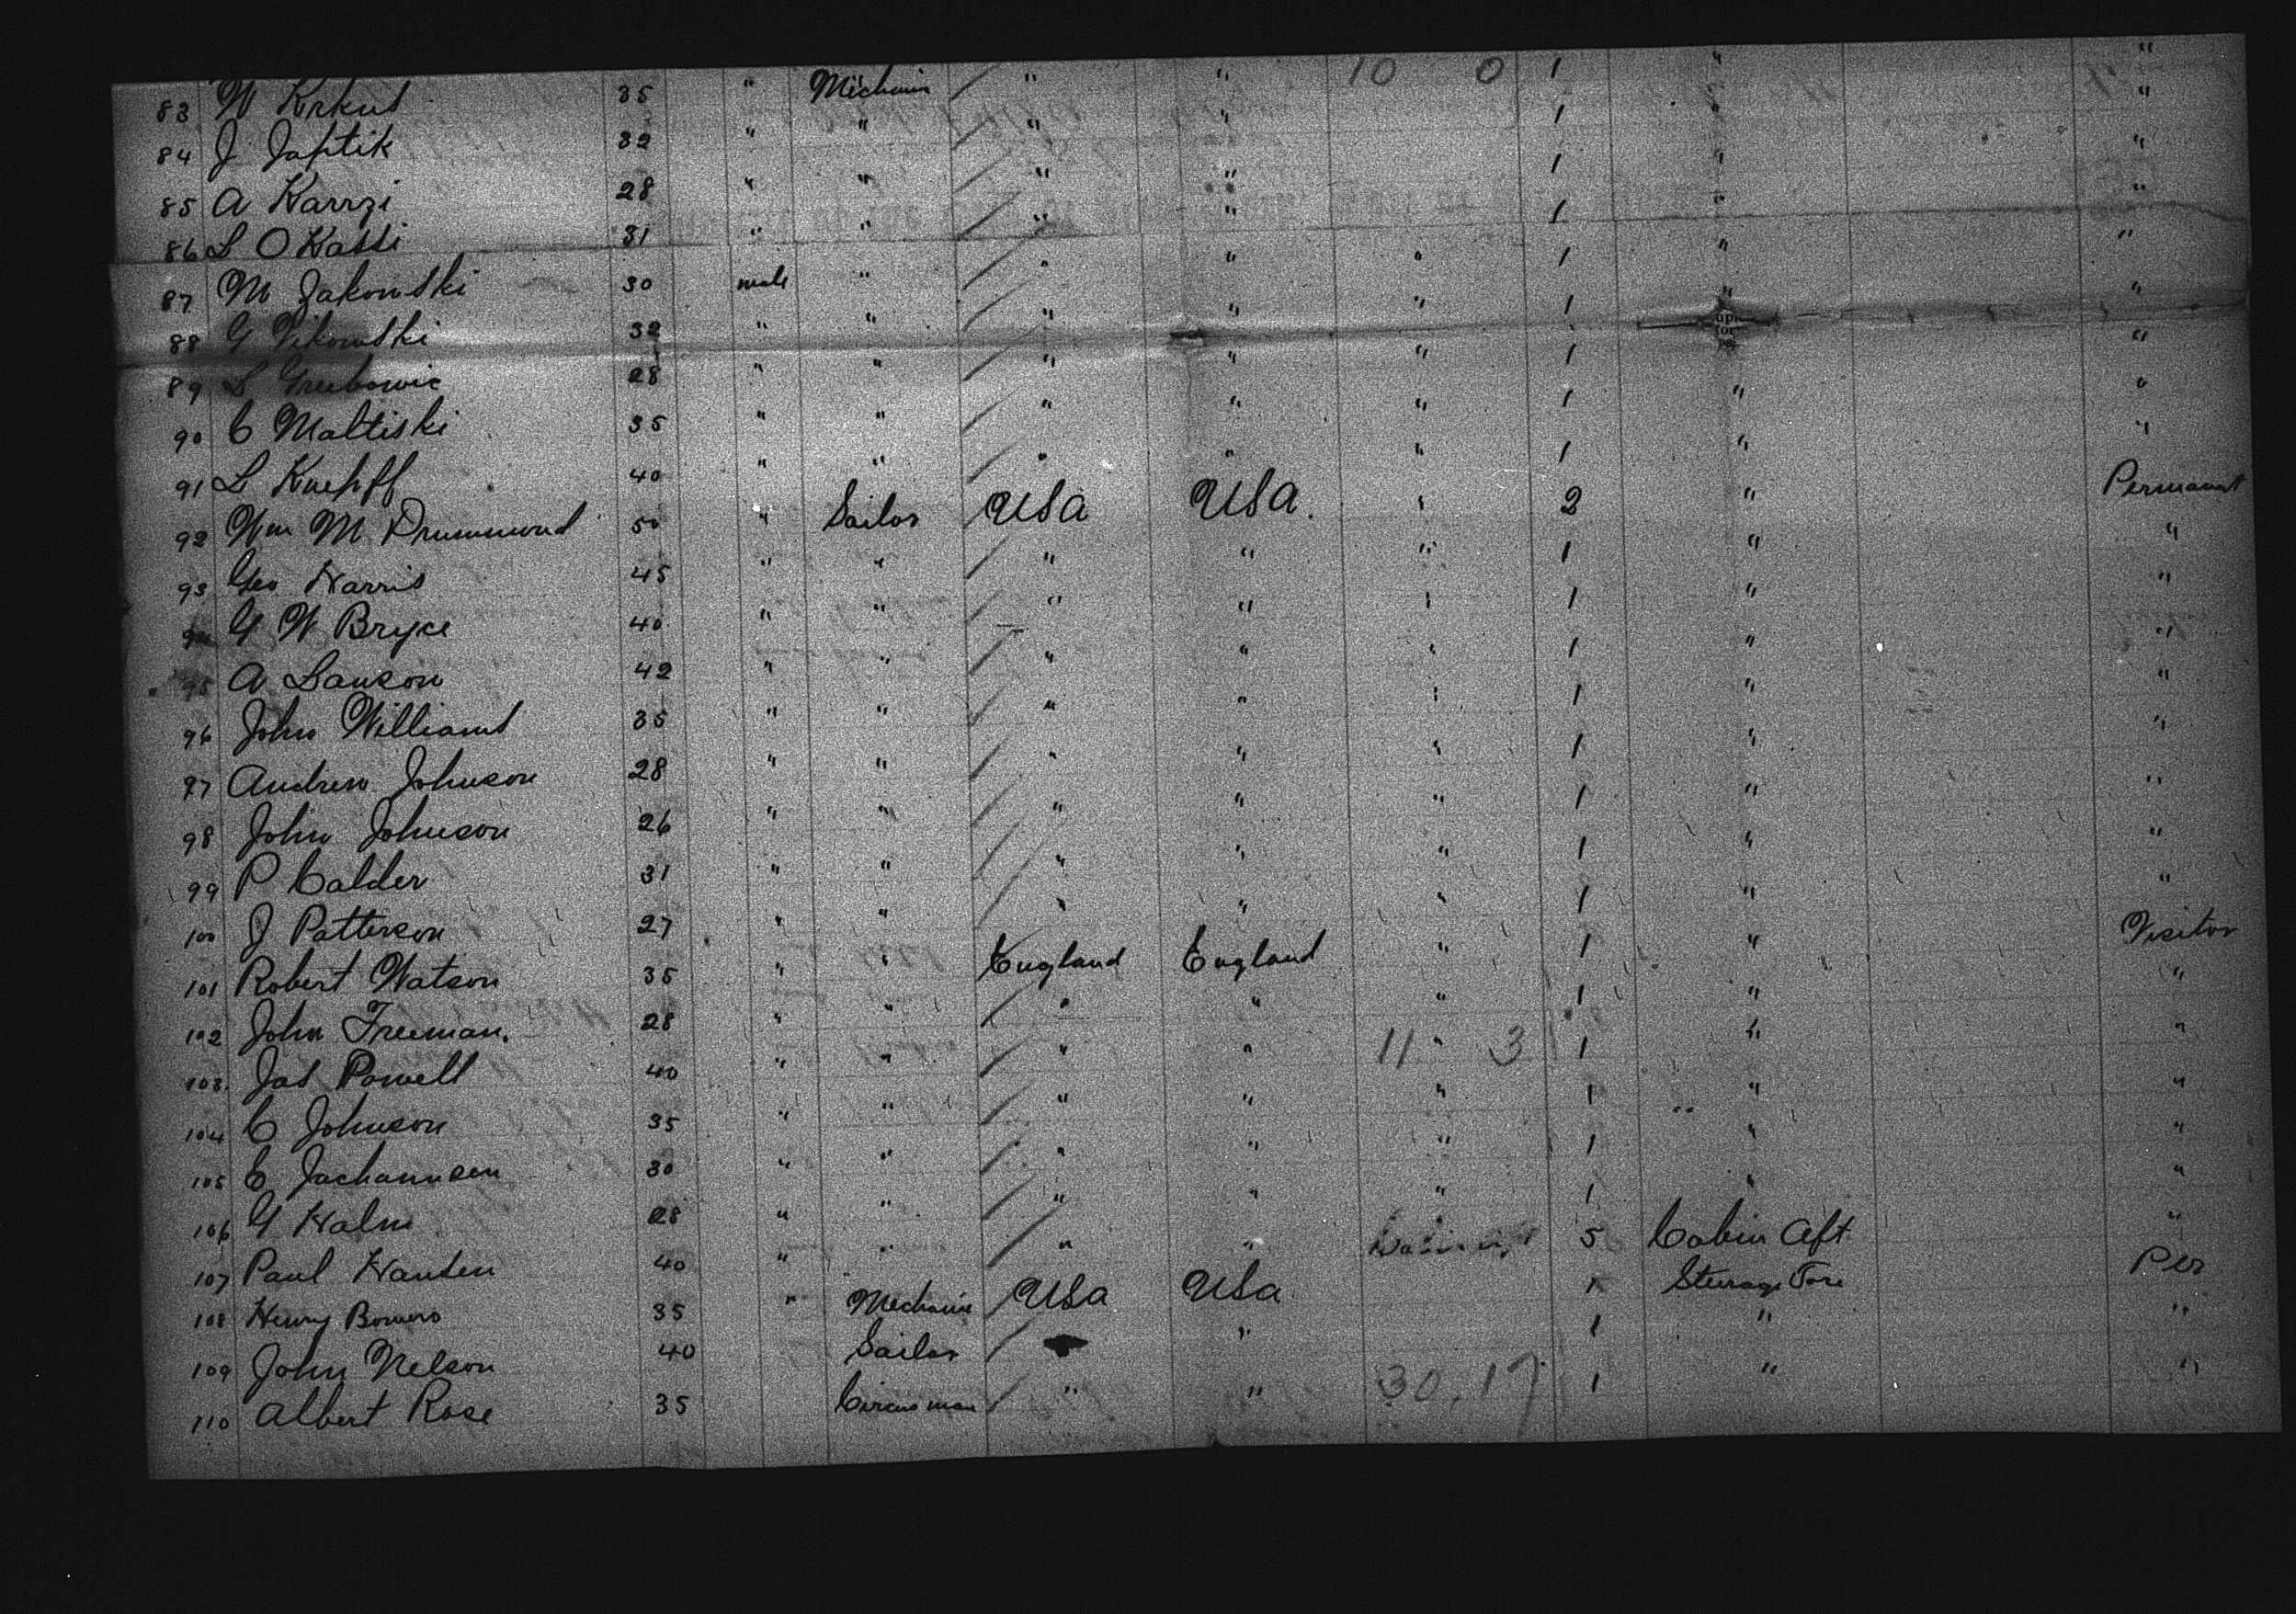 83 W Krkut 35 " Mechanic " " 10 0 1 " "
84 J Japtik 32 " " " " 1 " "
85 A Karrzi 28 " " " " 1 " "
86 L O Kassi 31 " " " " 1 " "
87 M Jakowski 30 male " " " " 1 " "
88 G Vikowski 32 " " " " " 1 " "
89 L 28 " " " " " 1 " "
90 C Maltiski 35 " " " " " 1 " "
91 L Kuepff 40 " " " " " 1 " "
92 Wm M Drummond 50 " Sailor USA USA. " 2 " Permanant
93 Geo Harris 45 " " " " " 1 " "
94 G W Bryce 40 " " " " " 1 " "
95 A Lauson 42 " " " " " 1 " "
96 John Williams 35 " " " " " 1 " "
97 Andrew Johnson 28 " " " " " 1 " "
98 John Johnson 26 " " " " " 1 " "
99 P Calder 31 " " " " " 1 " "
100 J Patterson 27 " " " " " 1 " "
101 Robert Watson 35 " " England England " 1 " Visitor
102 John Freeman. 28 " " " " " 1 " "
103. Jas Powell 40 " " " " 11 " 3 1 " "
104 C Johnson 35 " " " " " 1 " "
105 C Jachannsen 30 " " " " " 1 " "
106 G Halm 28 " " " " " 1 " "
107 Paul Hansen 40 " " " " 5 Cabin Aft "
108 Henry Bowers 35 " Mechanic USA USA 1 Sturage Fore Per
109 John Nelson 40 Sailor " 1 " "
110 Albert Rose 35 Circus man " " 30.17 1 " "